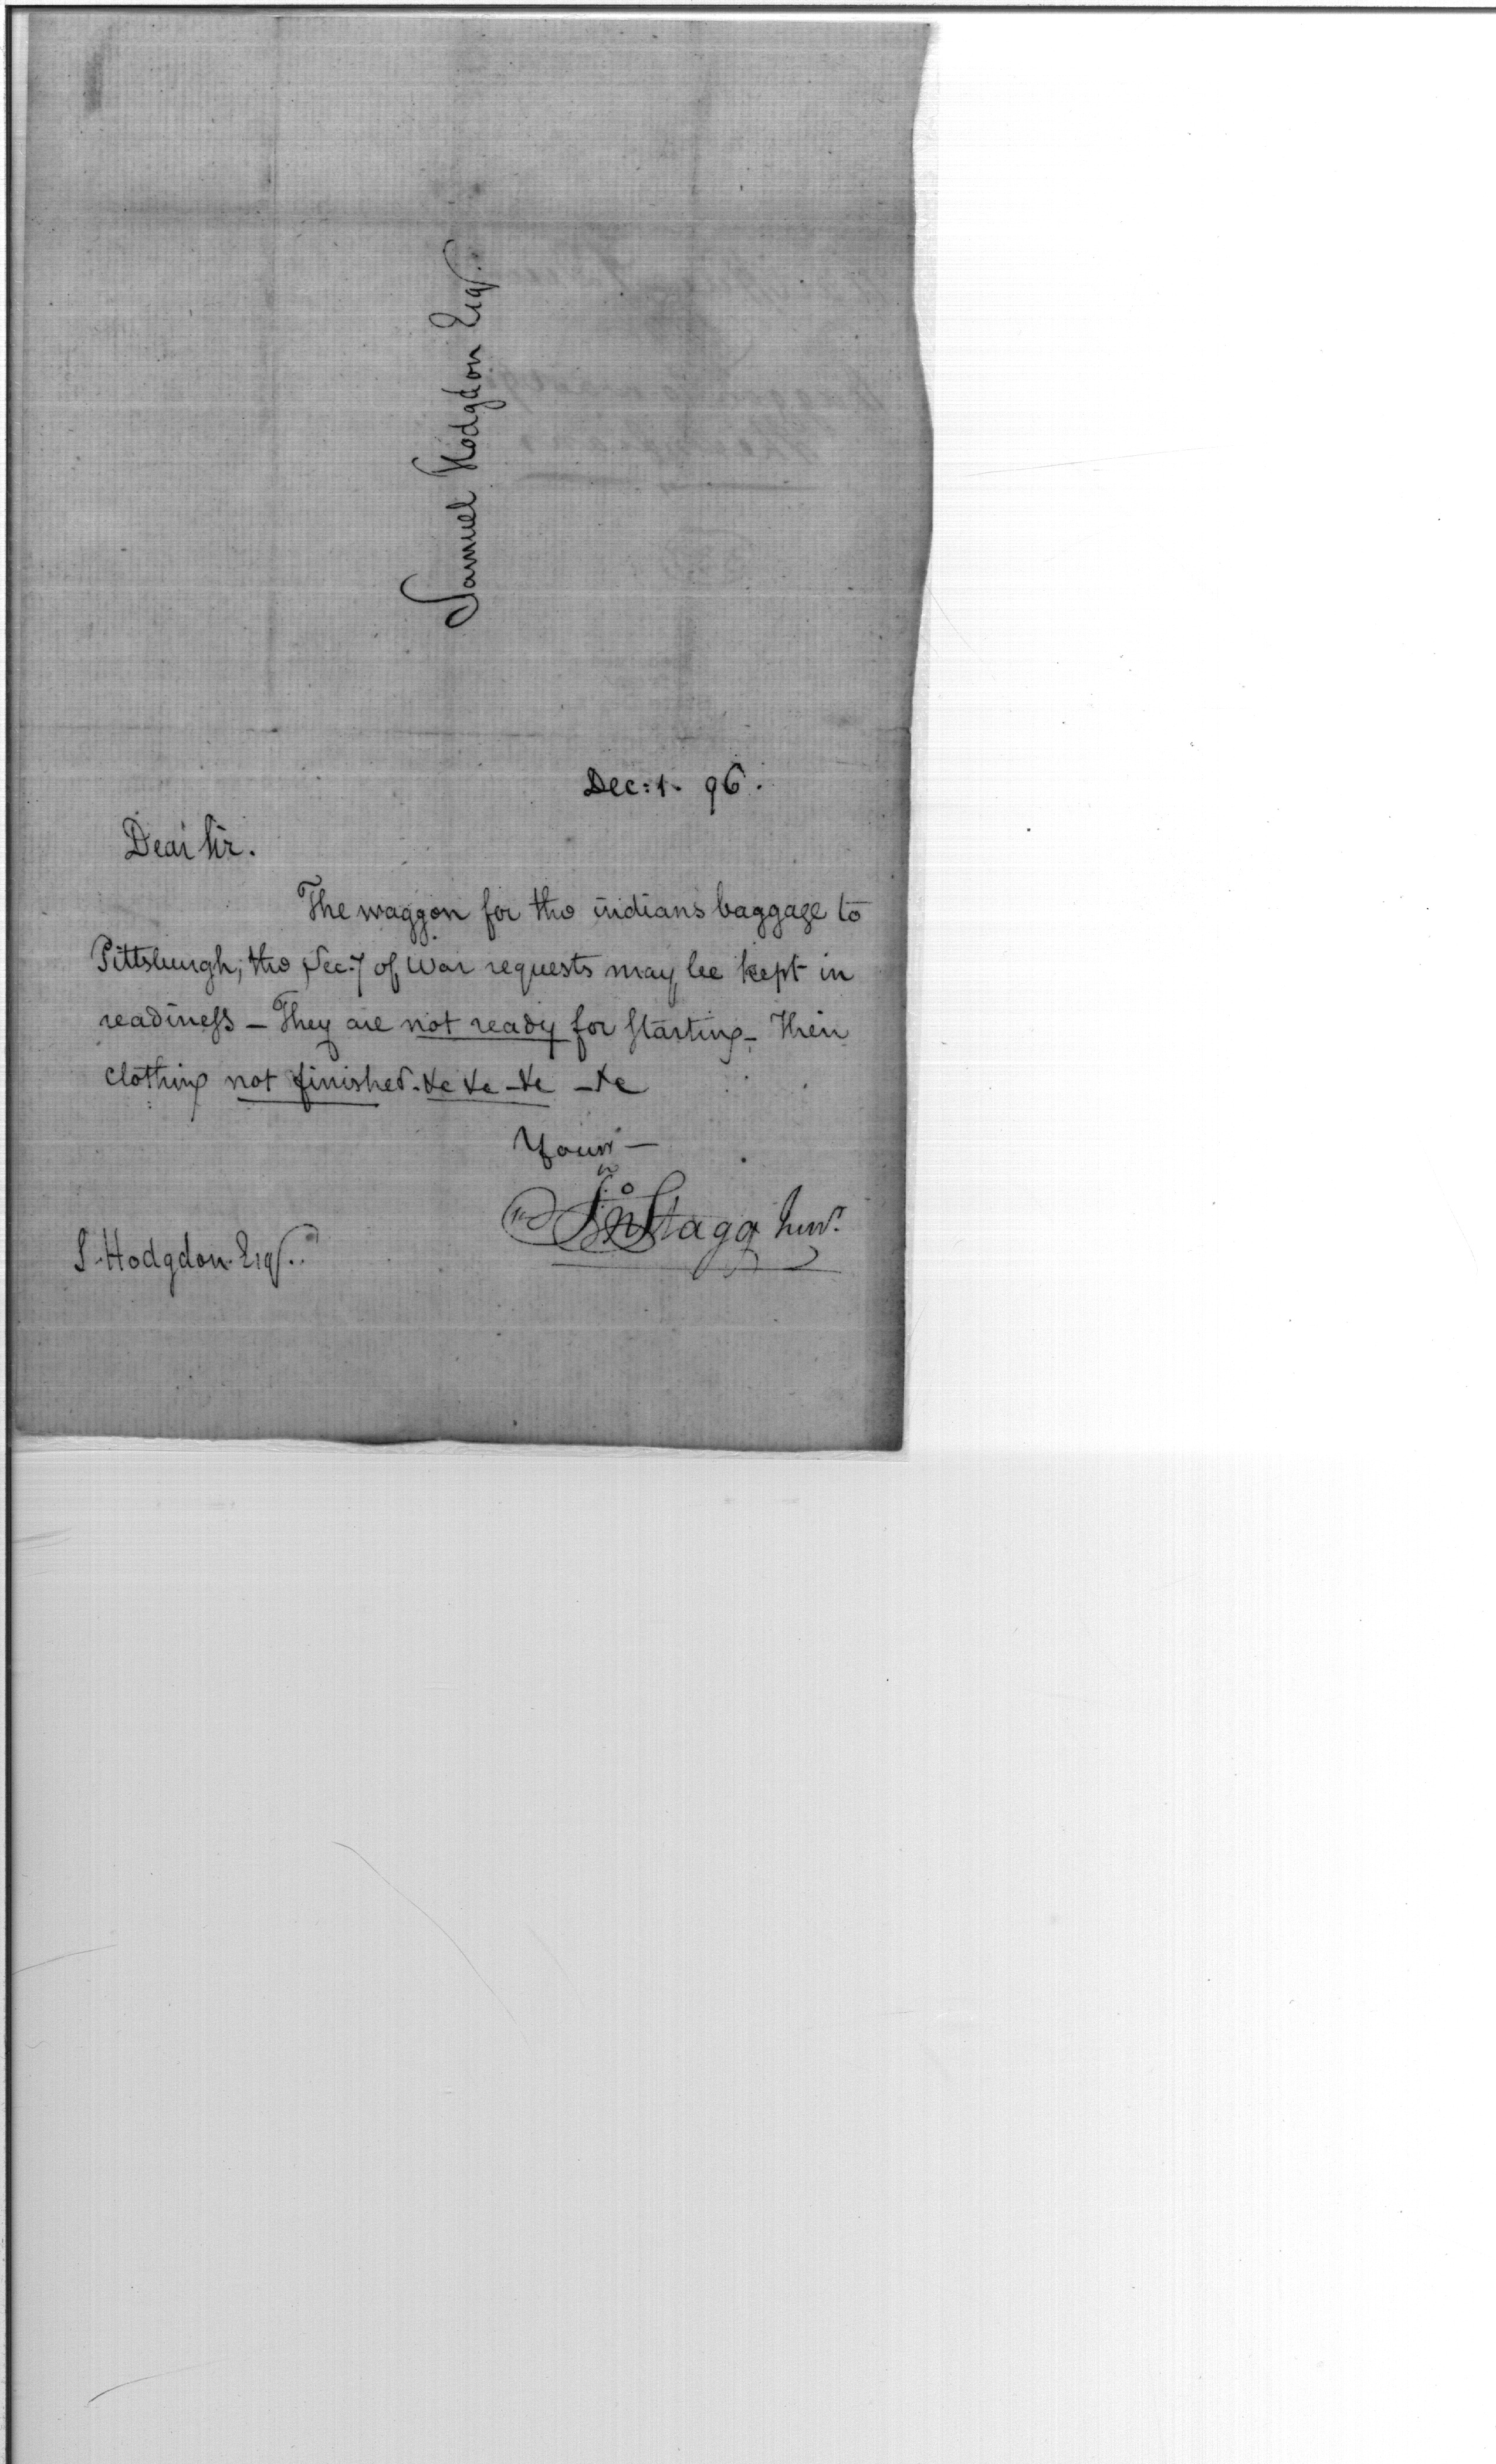 Samuel Hodgdon Esqr.
Dec: 1. 96.
Dear Sir.
The waggon for the indians baggage to
Pittsburgh, the Secy of War requests may be kept in
readiness – They are not ready for starting – Their
clothing not finished. &c &c – &c – &c
Yours –
Jno Stagg Junr.
S. Hodgdon. Esqr.